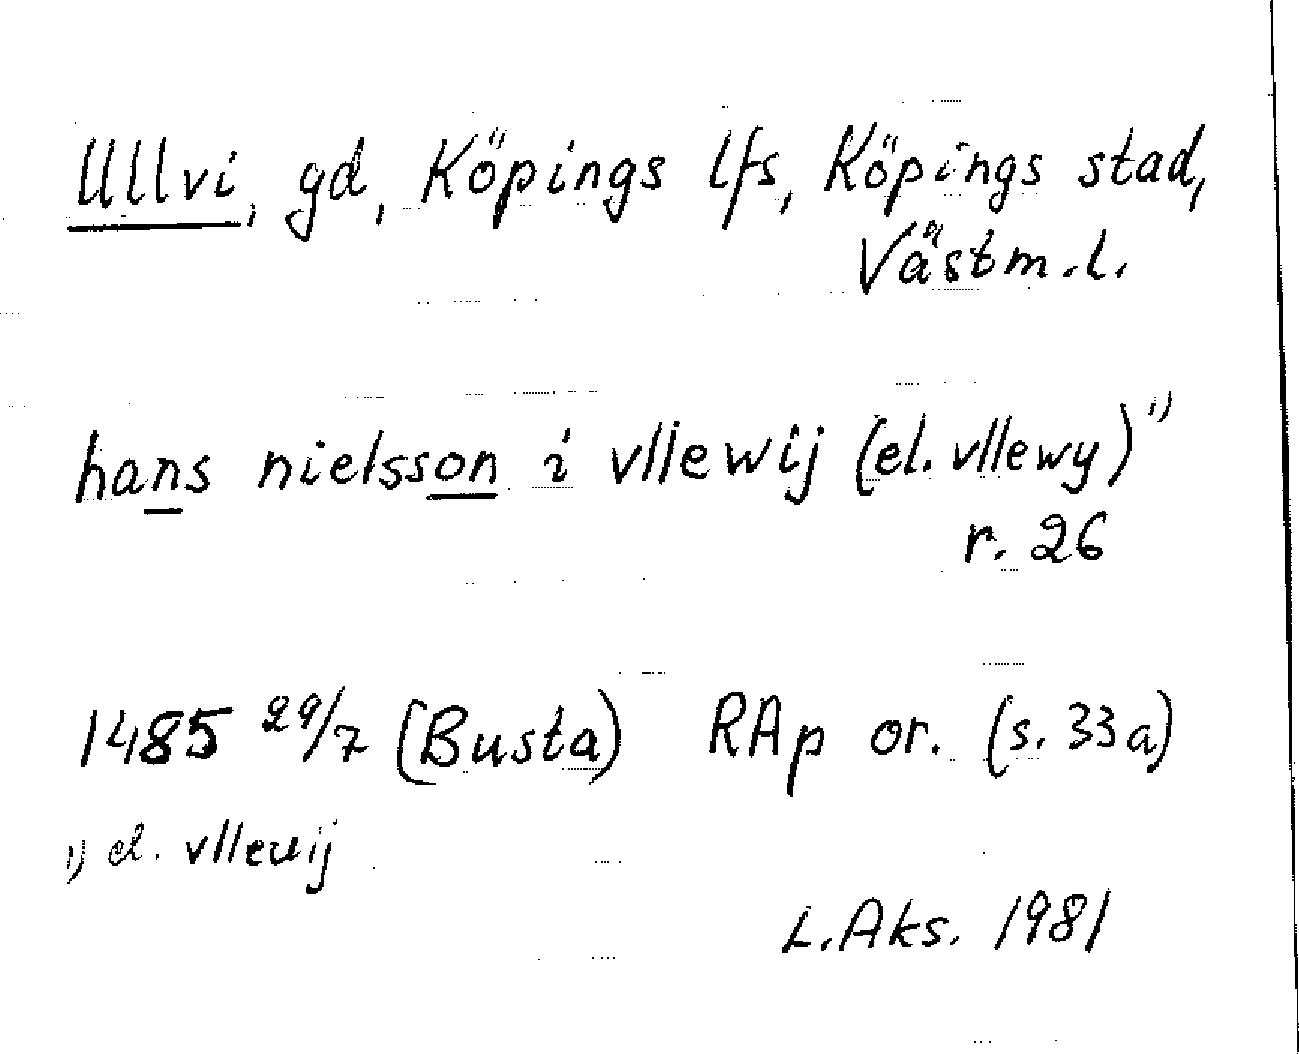 Ullvi, gd, Köpings lfs, Köpings stad,
Västm.l.
hans nielsson i vllewij (el. vllewy) 1)
r. 26
1485 29/7 (Busta) RAp or. (s. 33a)
1) el. vlleuij
L.Aks. 1981